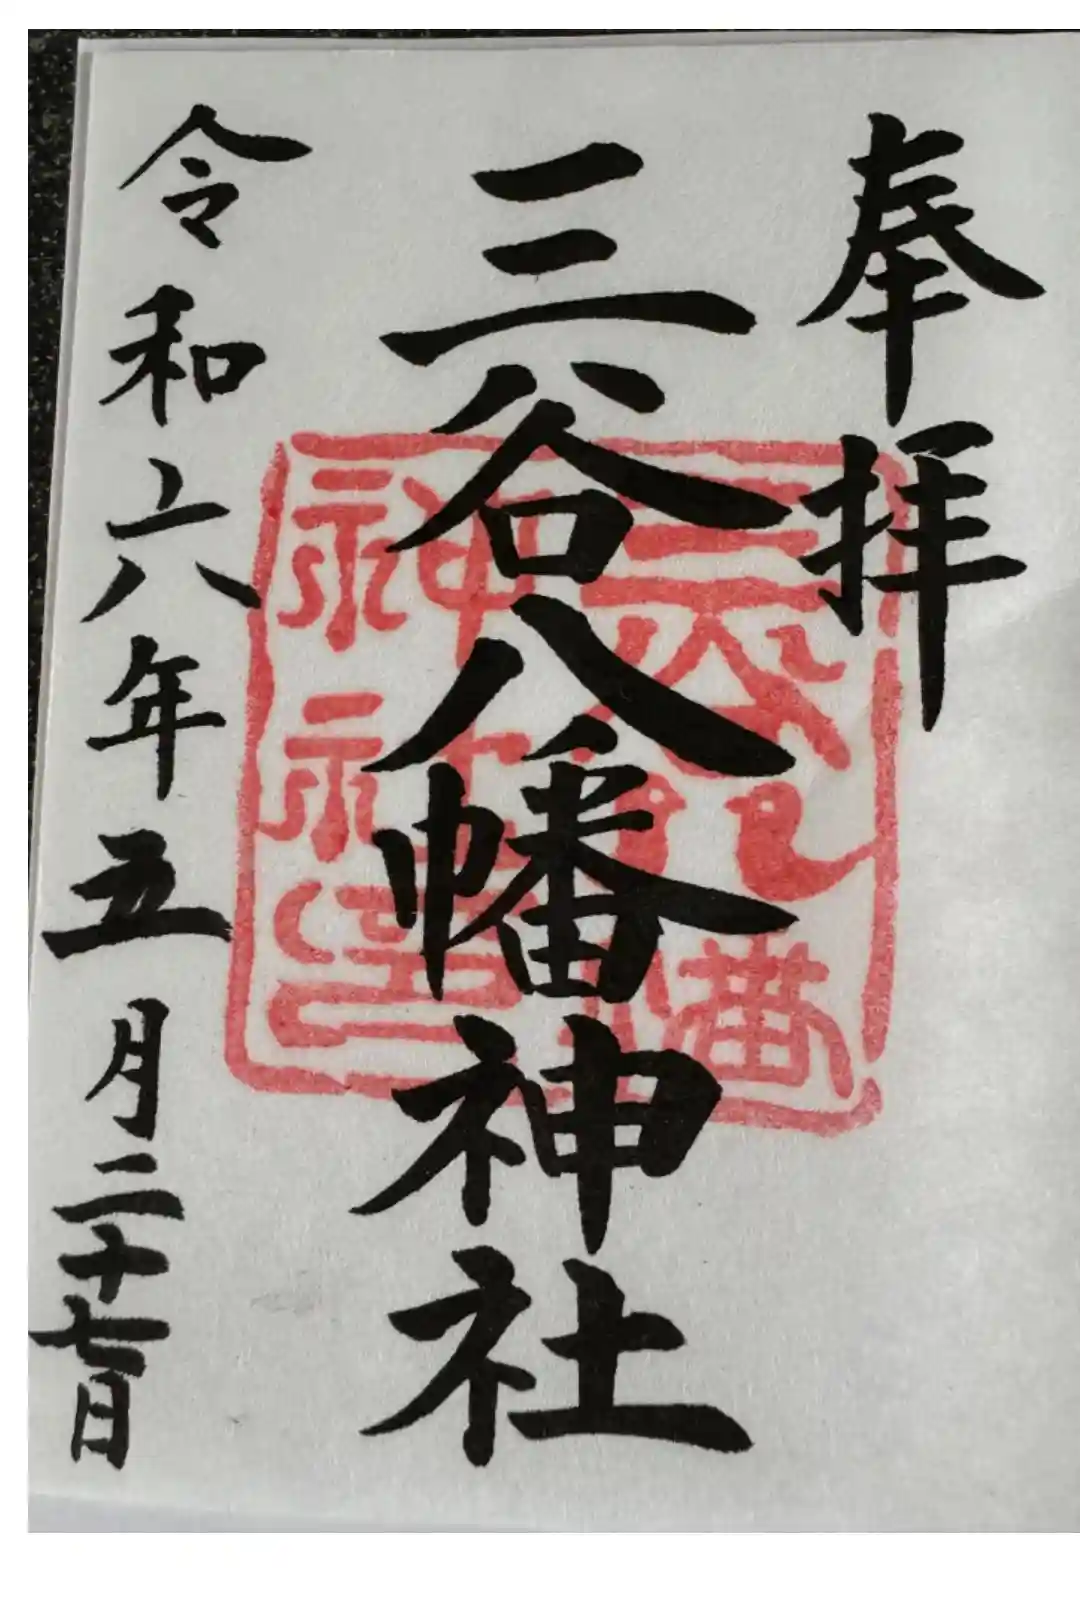 奉拝
三谷八幡神社
令和六年五月二十七日
三谷八幡
神社之印